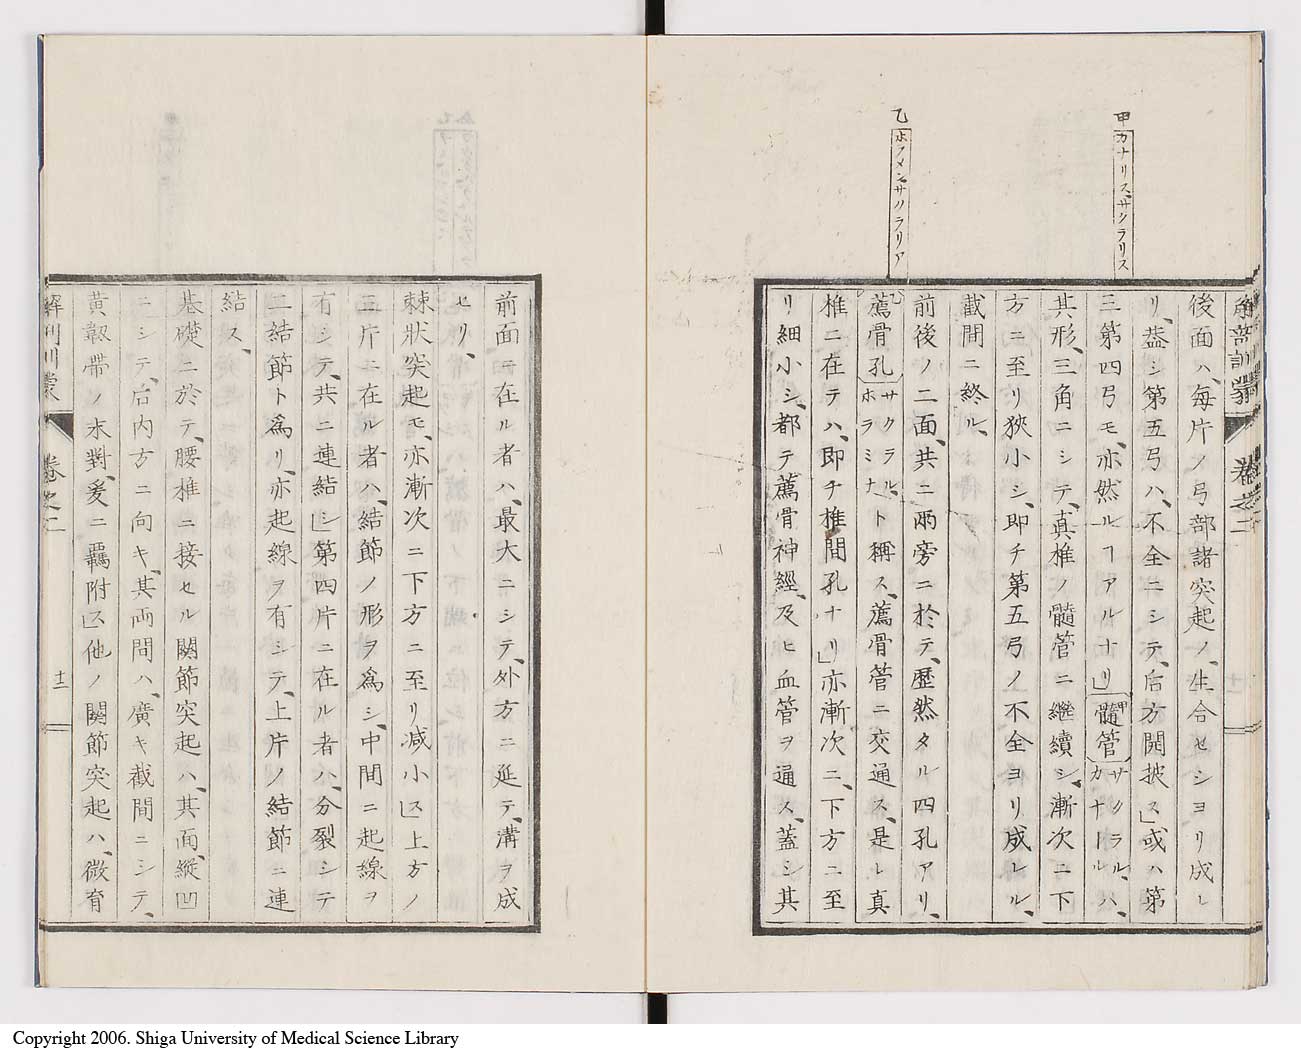 甲カナリス、サクラリス
乙ホラメンサクラリア
後面ハ、毎片ノ弓部諸突起ノ、生合セシヨリ成レ
リ、葢シ第五弓ハ、不全ニシテ、后方開披ス」或ハ第
三第四弓モ、亦然ルヿアルナリ」髓管甲サクラル、カナールハ、
其形、三角ニシテ、真椎ノ髓管ニ継續シ、漸次ニ下
方ニ至リ狹小シ、即チ第五弓ノ不全ヨリ成レル、
截間ニ終ル、
前後ノ二面、共ニ兩旁ニ於テ、歴然タル四孔アリ、
薦骨孔乙サクラル、ホラミナ」ト稱ス、薦骨管ニ交通ス、是レ真
椎ニ在テハ、即チ椎間孔ナリ」亦漸次ニ、下方ニ至
リ細小シ、都テ薦骨神經、及ヒ血管ヲ通ス、蓋シ其
前面ニ在ル者ハ、最大ニシテ、外方ニ延テ、溝ヲ成
セリ、
棘狀突起モ、亦漸次ニ下方ニ至リ减小ス」上方ノ
三片ニ在ル者ハ、結節ノ形ヲ為シ、中間ニ起線ヲ
有シテ、共ニ連結シ」第四片ニ在ル者ハ、分裂シテ
二結節ト為リ、亦起線ヲ有シテ、上片ノ結節ニ連
結ス、
基礎ニ於テ、腰椎ニ接セル關節突起ハ、其面、縦凹
ニシテ、后内方ニ向キ、其両間ハ、廣キ截間ニシテ、
黄靱帯ノ水對、爰ニ羈附ス」他ノ關節突起ハ、微育
卷之二
十二
Copyright 2006. Shiga University of Medical Science Library